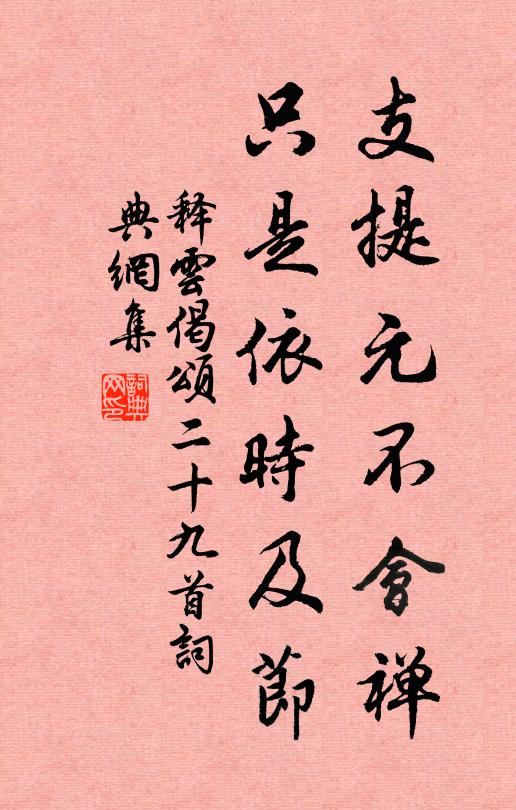 支提元不會禅
只是依時及節
释雲偈頌二十九首詞
典網集
詞典网印